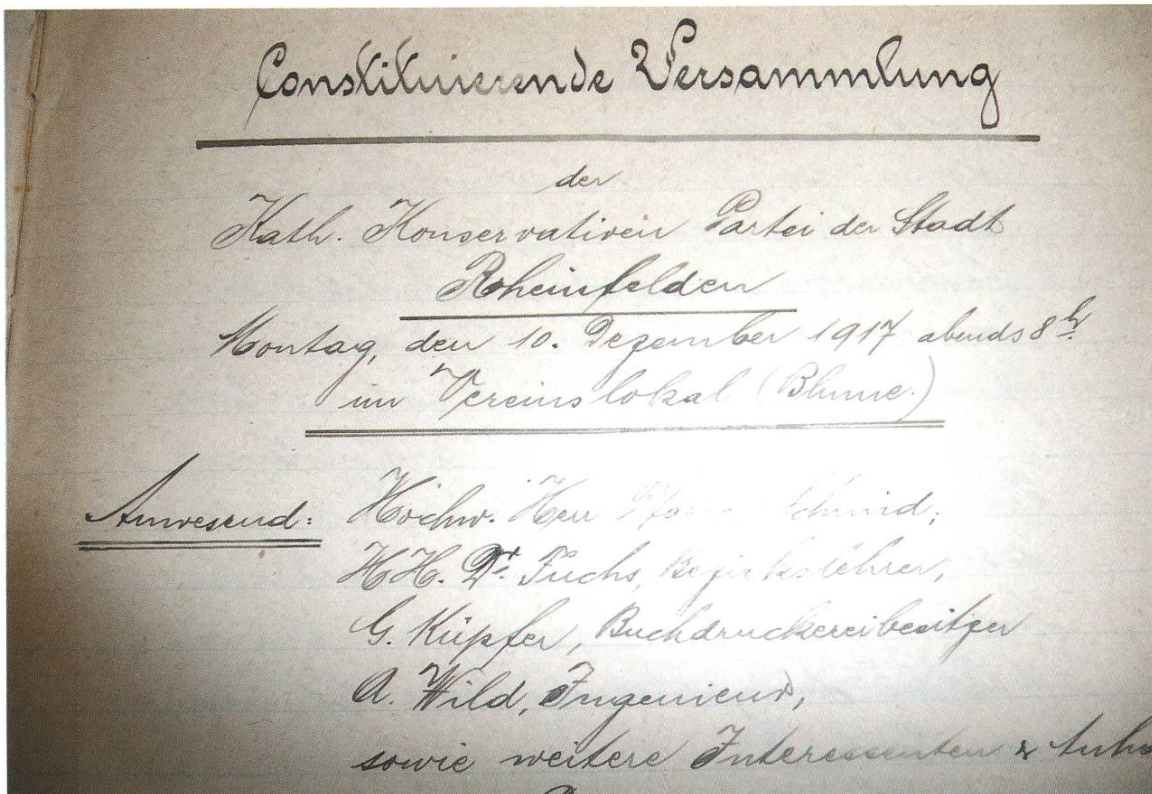 Constituierende Versammlung
der
Kath. Konservativen Partei der Stadt
Rheinfelden
Montag, den 10. Dezember 1917 abends 8 h.
im Vereinslokal (Blume.)
Anwesend: Hochw. Herr Pfarrer Schmid;
H.H. Dr. Fuchs, Bezirkslehrer,
G. Küpfer, Buchdruckereibesitzer
A. Wild, Ingenieur,
sowie weitere Interessenten &